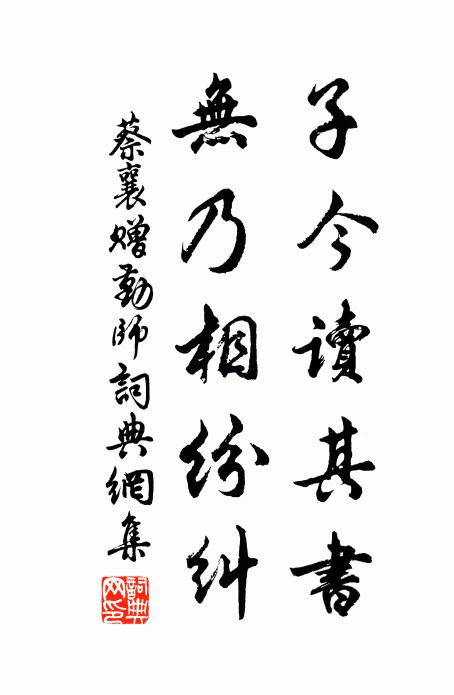 子今讀其書
無乃相紛糾
蔡襄贈勤師詞典網集
詞典
网印